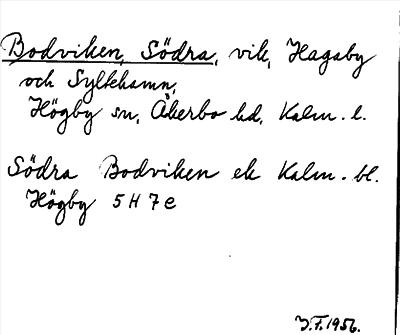 Bodviken, Södra, vik, Hagaby
och Sylkhamn,
Högby sn, Åkerbo hd, Kalm. l.
Södra Bodviken ek Kalm. bl.
Högby 5 H 7 e
J.F. 1956.